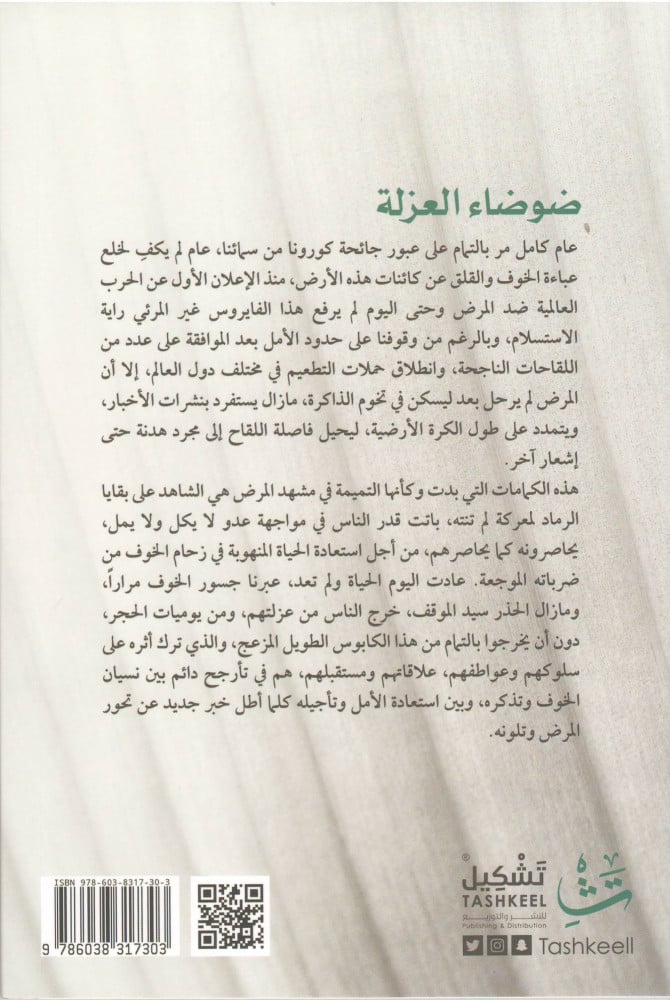 ضوضاء العزلة
عام كامل مر بالتمام على عبور جائحة كورونا من سمائنا، عام لم يكفِ لخلع
عباءة الخوف والقلق عن كائنات هذه الأرض، منذ الإعلان الأول عن الحرب
العالمية ضد المرض وحتى اليوم لم يرفع هذا الفايروس غير المرئي راية
الاستسلام، وبالرغم من وقوفنا على حدود الأمل بعد الموافقة على عدد من
اللقاحات الناجحة، وانطلاق حملات التطعيم في مختلف دول العالم، إلا أن
المرض لم يرحل بعد ليسكن في تخوم الذاكرة، مازال يستفرد بنشرات الأخبار،
ويتمدد على طول الكرة الأرضية، ليحيل فاصلة اللقاح إلى مجرد هدنة حتى
إشعار آخر.
هذه الكمامات التي بدت وكأنها التميمة في مشهد المرض هي الشاهد على بقايا
الرماد لمعركة لم تنته، باتت قدر الناس في مواجهة عدو لا يكل ولا يمل،
يحاصرونه كما يحاصرهم، من أجل استعادة الحياة المنهوبة في زحام الخوف من
ضرباته الموجعة. عادت اليوم الحياة ولم تعد، عبرنا جسور الخوف مراراً،
ومازال الحذر سيد الموقف، خرج الناس من عزلتهم، ومن يوميات الحجر،
دون أن يخرجوا بالتمام من هذا الكابوس الطويل المزعج، والذي ترك أثره على
سلوكهم وعواطفهم، علاقاتهم ومستقبلهم، هم في تأرجح دائم بين نسيان
الخوف وتذكره، وبين استعادة الأمل وتأجيله كلما أطل خبر جديد عن تحور
المرض وتلونه.
ISBN 978-603-8317-30-3
9 786038 317303
تشكيل®
TASHKEEL
للنشر والتوزيع
Publishing & Distribution
Tashkeell